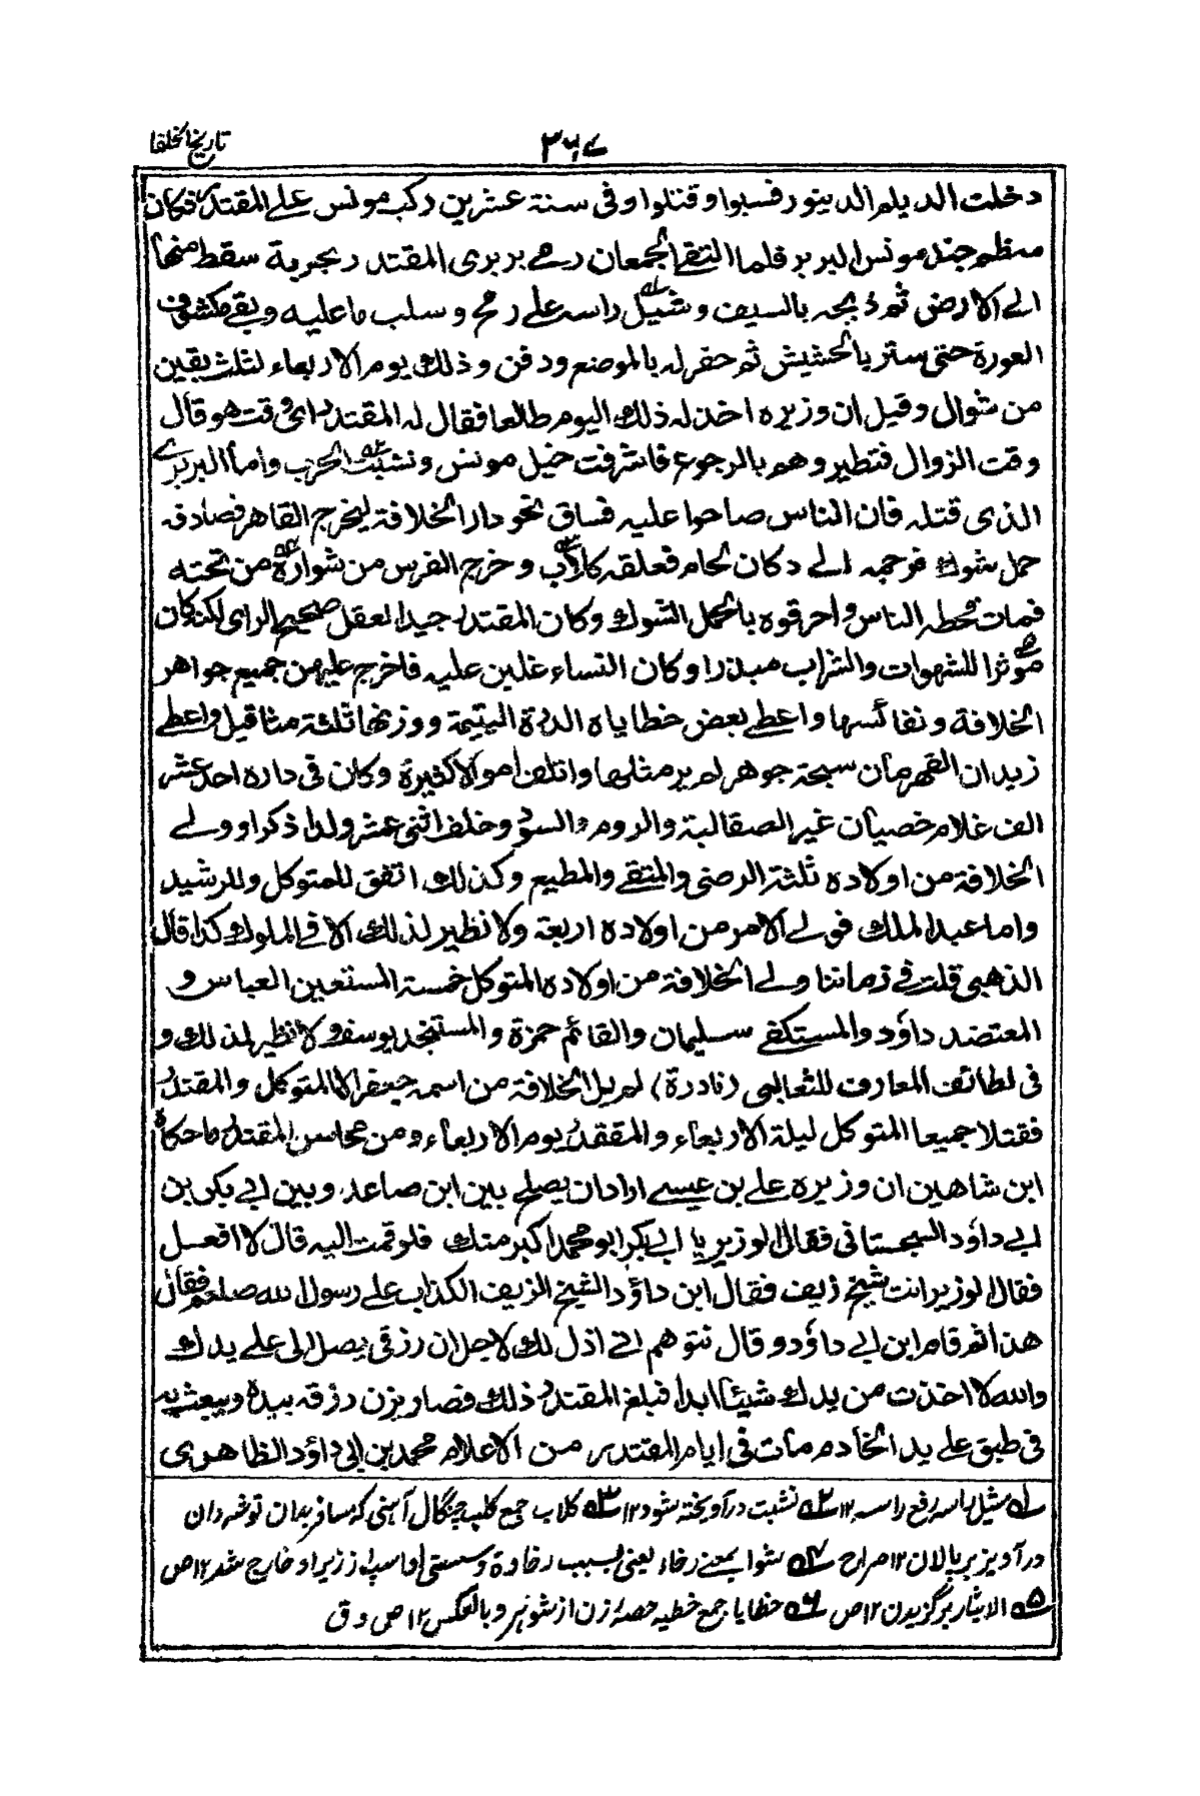 تاریخ الخلفا
۳۶۷
دخلت الدیلم الدینور فسبوا وقتلوا وفی سنة عشرین رکب مونس علی المقتدر فکان
معظم جند مونس البربر فلما التقی الجمعان رمی بربری المقتدر بحربة سقط منها
الی الارض ثم ذبحه بالسیف وشیل راسه علی رمح وسلب ما علیه وبقی مکشوف
العورة حتی ستر بالحشیش ثم حفر له بالموضع ودفن وذلک یوم الاربعاء لثلث بقین
من شوال وقیل ان وزیره اخذ له ذلک الیوم طالعا فقال له المقتدر ای وقت هو قال
وقت الزوال فتطیر وهم بالرجوع فاشرفت خیل مونس ونشبت الحرب واما البربری
الذی قتله فان الناس صاحوا علیه فساق نحو دار الخلافة لیخرج القاهر فصادفه
حمل شوک فرحمه الی دکان لحام فعلقه کلاب وخرج الفرس من شواره من تحته
فمات فحطه الناس واحرقوه بالحمل الشوک وکان المقتدر جید العقل صحیح الرای لکنه کان
موثرا للشهوات والشراب مبذرا وکان النساء غلبن علیه فاخرج علیهن جمیع جواهر
الخلافة ونفائسها واعطی بعض خطایاه الدرة الیتیمة ووزنها ثلثة مثاقیل واعطی
زیدان القهرمان سبحة جوهر لم یر مثلها واتلف اموالا کثیرة وکان فی داره احد عشر
الف غلام خصیان غیر الصقالبة والروم والسود وخلف اثنی عشر ولدا ذکرا وولی
الخلافة من اولاده ثلثة الرضی والمتقی والمطیع وکذلک اتفق للمتوکل وللرشید
واما عبدالملک فولی الامر من اولاده اربعة ولا نظیر لذلک الا فی الملوک کذا قال
الذهبی قلت فی زماننا ولی الخلافة من اولاد المتوکل خمسة المستعین العباس و
المعتضد داؤد والمستکفی سلیمان والقائم حمزة والمستنجد یوسف ولا نظیر لذلک و
فی لطائف المعارف للثعالبی (نادرة) لم یل الخلافة من اسمه جعفر الا المتوکل والمقتدر
فقتلا جمیعا المتوکل لیلة الاربعاء والمقتدر یوم الاربعاء ومن محاسن المقتدر ما حکاه
ابن شاهین ان وزیره علی بن عیسی اراد ان یصلح بین ابن صاعد وبین ابی بکر بن
ابی داؤد السجستانی فقال الوزیر یا ابا بکر ابو محمد اکبر منک فلو قمت الیه قال لا افعل
فقال الوزیر انت شیخ زیف فقال ابن داؤد الشیخ الزیف الکذاب علی رسول الله صلعم فقال
هذا ثم قام ابن ابی داؤد وقال تتوهم انی اذل لک لاجل ان رزقی یصل الی علی یدک
والله لا اخذت من یدک شیئا ابدا فبلغ المقتدر ذلک فصار یزن رزقه بیده ویبعث به
فی طبق علی ید الخادم مات فی ایام المقتدر من الاعلام محمد بن ابی داؤد الظاهری
له شیل راسه رفع راسه ۱۲ ۲ه نشبت درآویخته شود ۱۲ ۳ه کلاب جمع کلب چنگال آهنی که مسافر بدان توشه دان
درآویزد بر پالان ۱۲ صراح ۴ه شوا بمعنی رخاء یعنی بسبب رخاوة وسستی او اسپ از زیر او خارج شد ۱۲ ص
۵ه الایثار برگزیدن ۱۲ ص ۶ه خطایا جمع خطیه حصهٔ زن از شوهر و بالعکس ۱۲ ص و ق